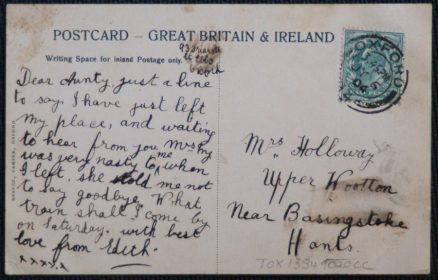 POSTCARD – GREAT BRITAIN & IRELAND
Writing Space for Inland Postage only.
Dear Aunty, just a line
to say, I have just left
my place, and waiting
to hear from you Mrs
was very nasty to me when
I left. she told me not
to say goodbye. What
train shall I come by
on Saturday. with best
love from Edith.
xxxxx
OXFORD
Mrs Holloway
Upper Wootton
Near Basingstoke
Hants.